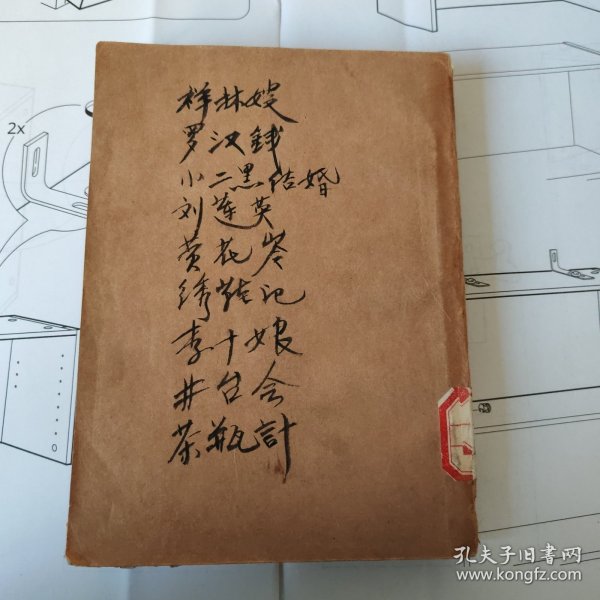 祥林嫂
罗汉錢
小二黑结婚
刘莲英
黄花岑
绣鞋记
李十娘
井台会
茶瓶計
2x
孔夫子旧书网
www.kongfz.com